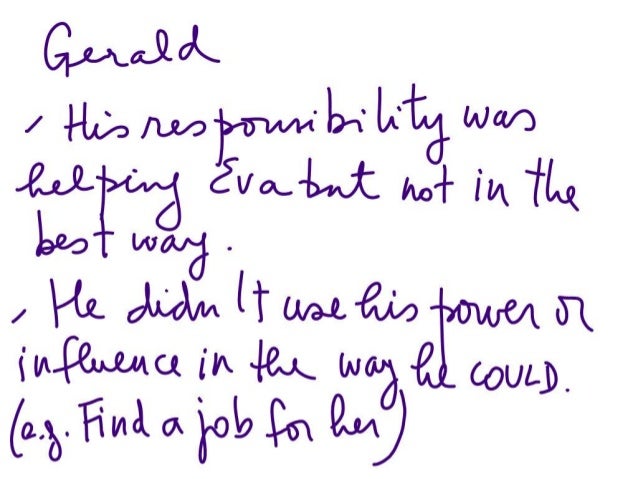 Gerald
- His responsibility was
helping Eva but not in the
best way.
- He didn't use his power or
influence in the way he COULD.
(e.g. Find a job for her)